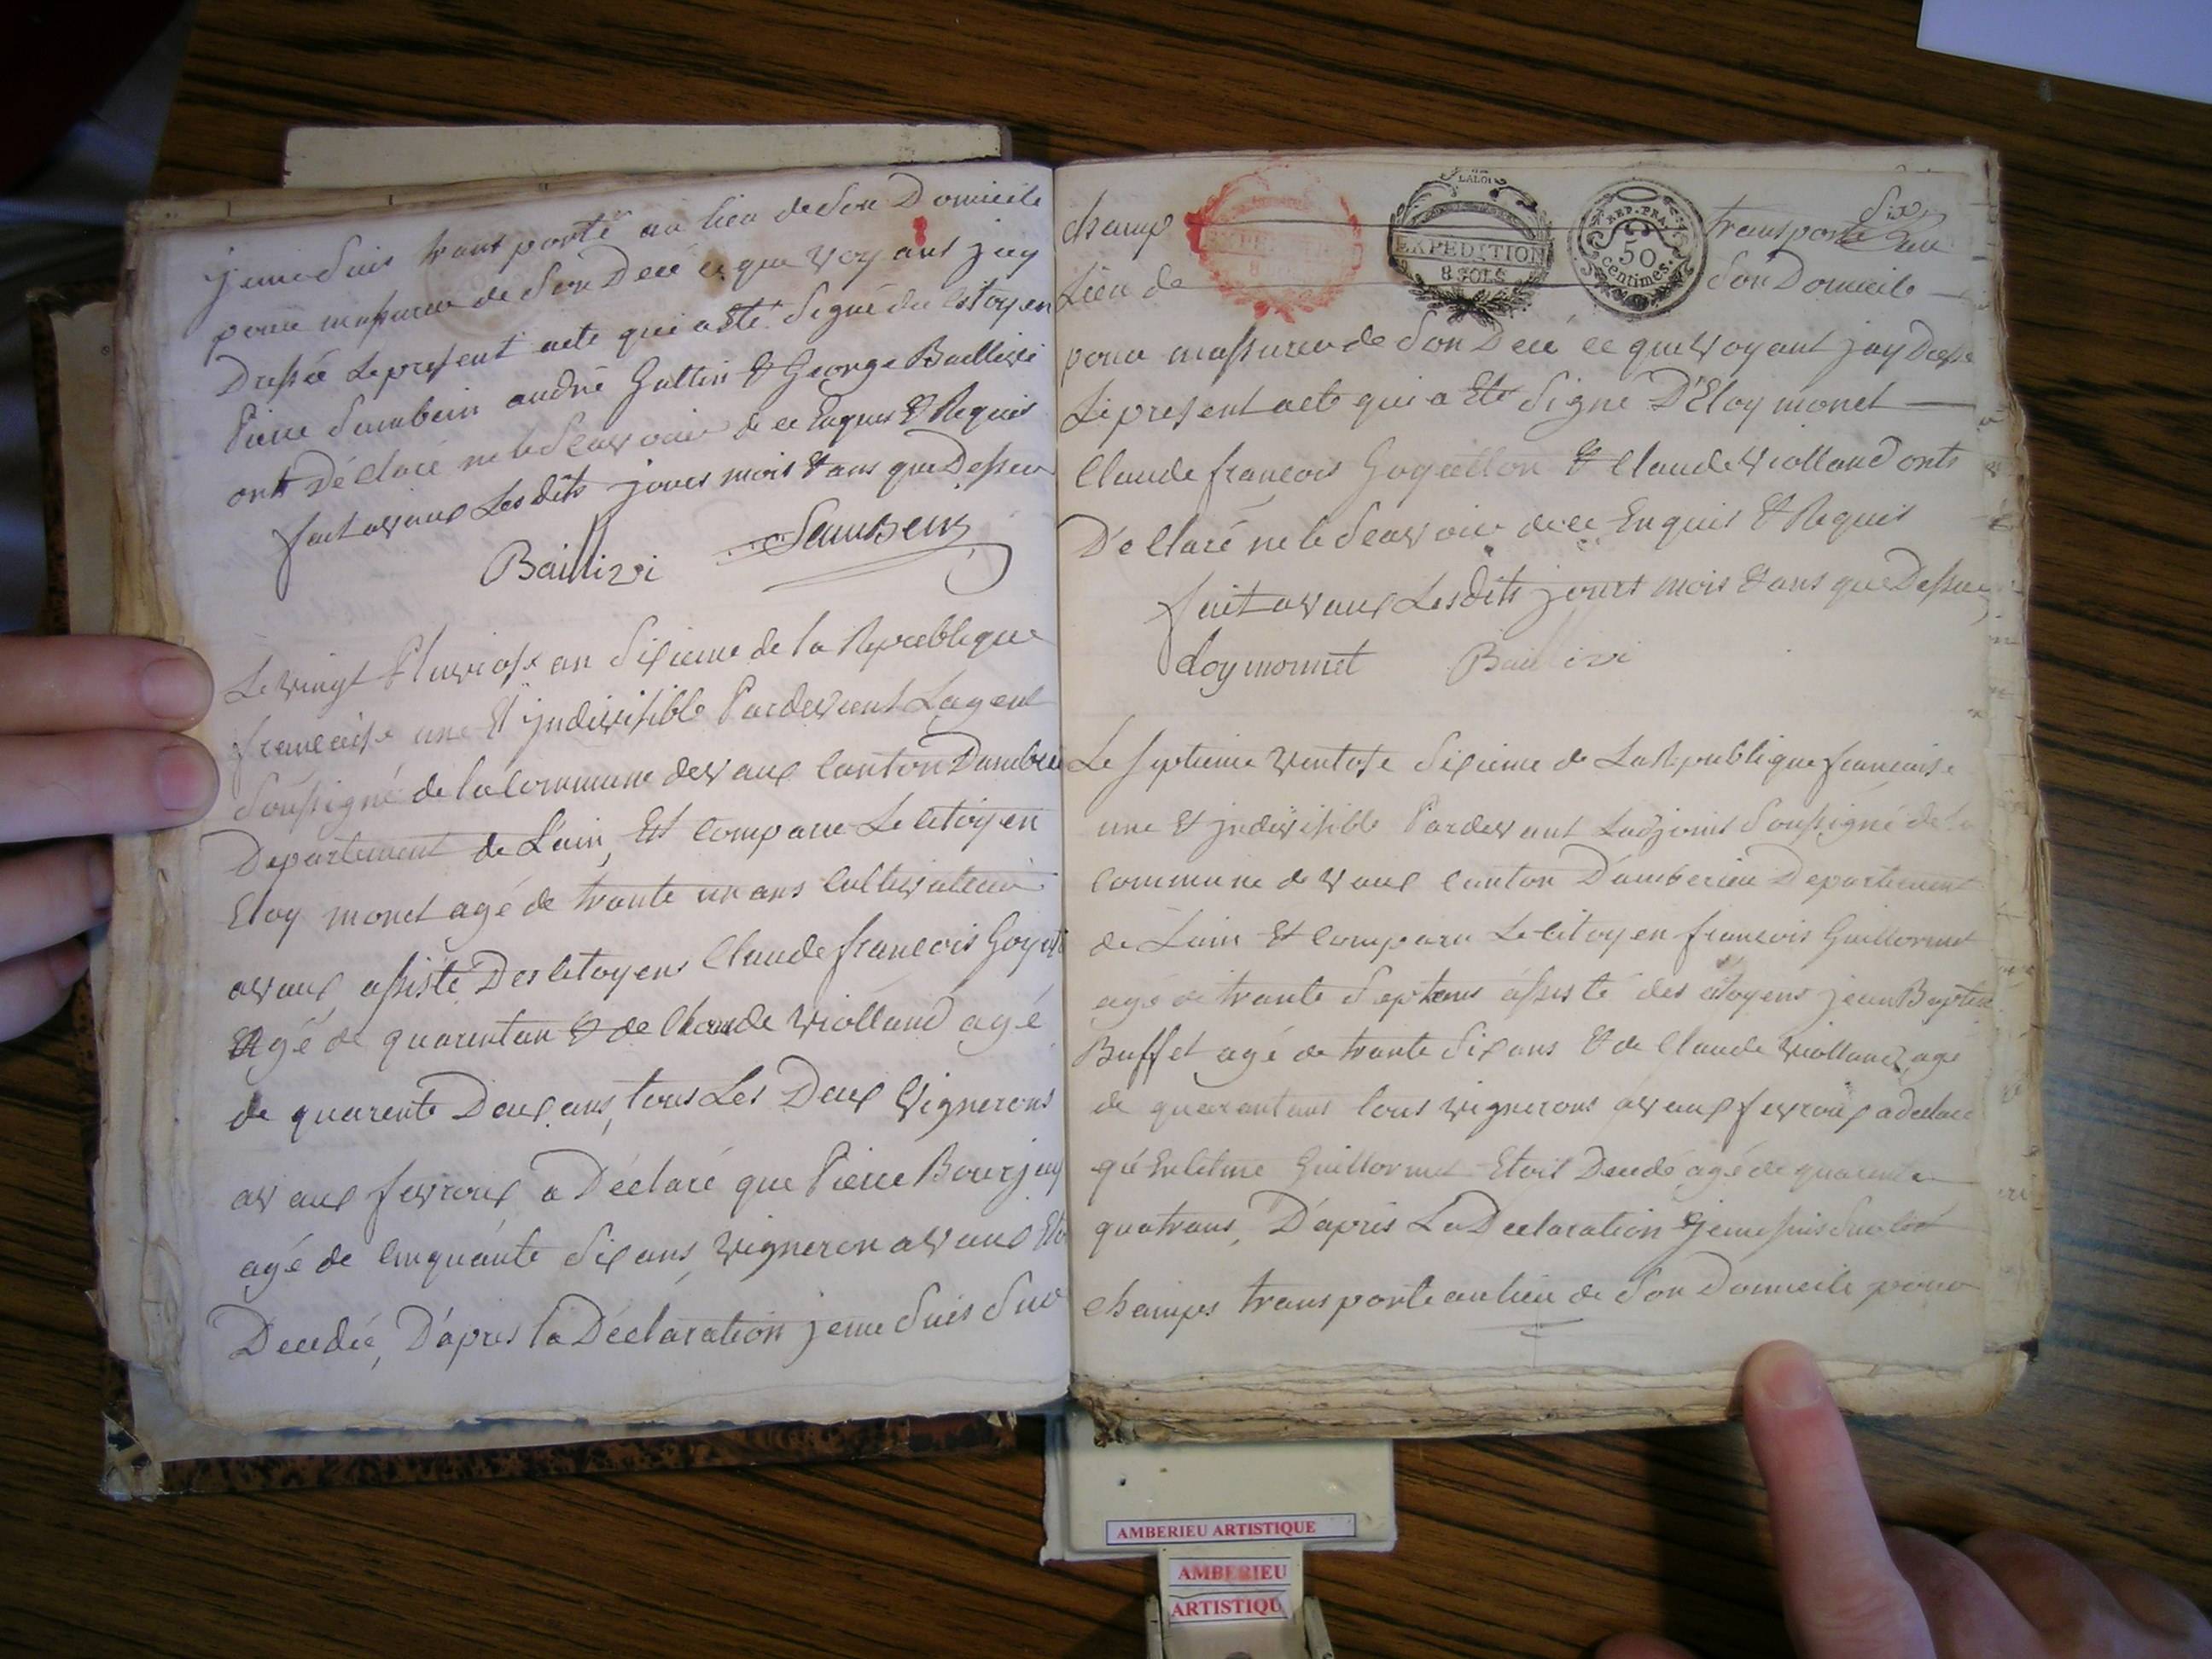 jeme suis transporté au lieu de Son Domicile
pour massurer de Son Decé ce que voyant jay
Dressée Le present acte qui a eté Signé du Citoyen
Pierre Sambein andré Guttin & George Baillivi
ont Déclaré ne le Seavoir de ce Enquis & Requis
fait avaux Les dits jours mois & ans que Dessu
Baillivi Sambein
Le vingt Pluviose an Sixieme de la Republique
francaise une & jndivisible Pardevant Lagent
Soussigné de la Commune devaux Canton Dambe
Departement de Lain, Est Comparu Le Citoyen
Eloy monet agé de trante un ans Cultivateur
avaux assisté Des Citoyens Claude francois Goya
Agé de quarentan & de Claude violland agé
de quarente Deux ans, tous Les Deux vignerons
avaux fevroux a Déclaré que Pierre Bourjay
agé de Cinquante Six ans, vigneron avaux Eto
Decedée, D'apres la Déclaration jeme Suis Sur
Six
champ transporté au
Lieu de Son Domicile
LALOI
EXPEDITION
8 SOLS
REP. FRA.
50
centimes.
pour massurer de Son Decé ce que voyant jay Dressé
Le present acte qui a Eté Signé D'Eloy monet
Claude francois Goyatton & Claude violland onts
Déclaré ne le Seavoir de ce Enquis & Requis
fait avaux Les dits jours mois & ans que Dessu
Eloy monnet Baillivi
Le septieme ventose Sixieme de La Republique francaise
une & jndivisible Pardevant Ladjoint Soussigné de la
Commune de vaux Canton D'amberieu Departement
de Lain Et Comparu Le Citoyen francois Guillormet
agé de trante Sept ans assisté des citoyens jean Baptis
Buffet agé de trante Six ans & de Claude violland, agé
de quarantans tous vignerons avaux fevroux a declaré
qu'Enletme Guillormet Etoit Decedé agé de quarente
quatrans, D'apres La Declaration jeme suis Sur les
champs transporté au lieu de Son Domicile pour
AMBERIEU ARTISTIQUE
AMBERIEU
ARTISTIQU